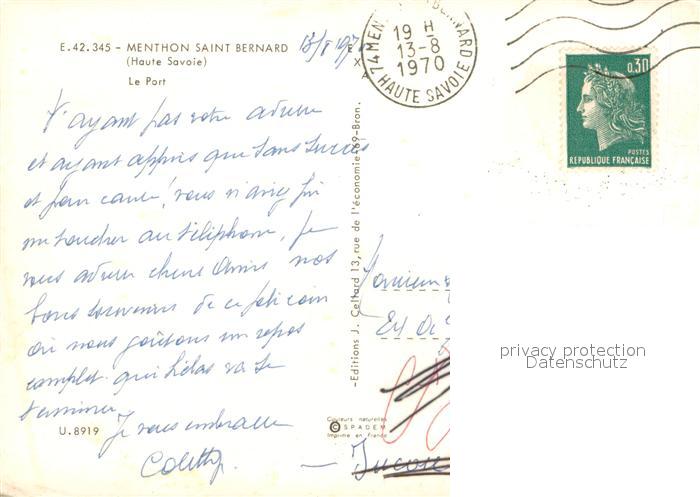 E.42.345 - MENTHON SAINT BERNARD
(Haute Savoie)
Le Port
19 H
13-8
1970
HAUTE SAVOIE
0,30
POSTES
REPUBLIQUE FRANÇAISE
N'ayant pas votre adresse
et ayant appris que sans succès
et pour cause! vous n'aviez pu
me toucher au téléphone, je
vous adresse chers Amis nos
bons souvenirs de ce joli coin
où nous goûtons un repos
complet qui hélas va se
terminer
Je vous embrasse
U.8919
-Editions J. Cellard 13, rue de l'économie-69-Bron.
Couleurs naturelles
© SPADEM
Imprimé en France
privacy protection
Datenschutz